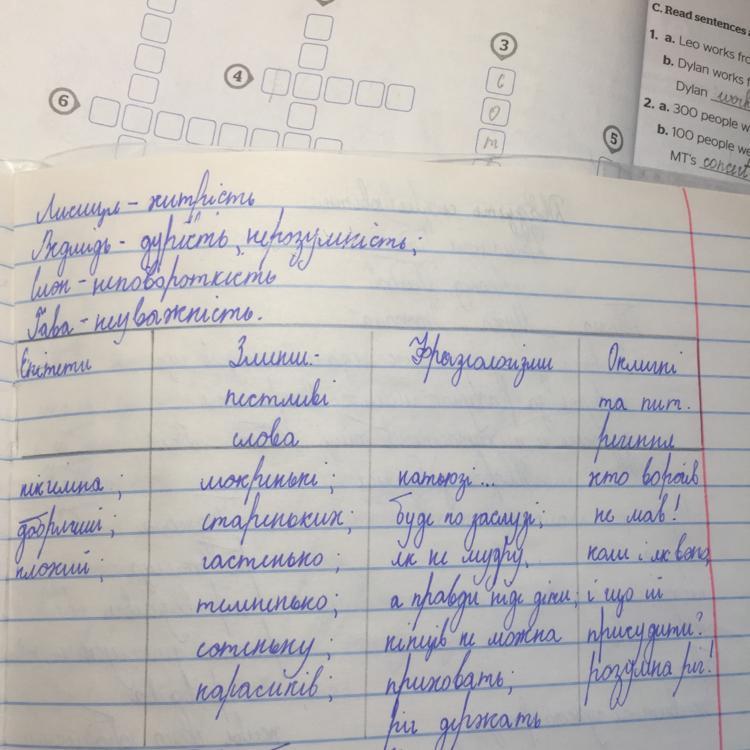 3
4
6
5
C
O
m
C. Read sentences a
1. a. Leo works fro
b. Dylan works f
Dylan work
2. a. 300 people w
b. 100 people we
MT's concert
Лисиця – хитрість
Ведмідь – дурість, нерозумність;
Слон – неповороткість
Ґава – неуважність.
Епітети
Зменш.-
пестливі
слова
Фразіологізми
Окличні
та пит.
речення
добрячий;
плохий;
мокренькі;
стареньких;
частенько;
темненько;
сотеньку;
карасиків;
катюзі...
буде по заслузі;
як не мудру,
а правди ніде діти;
кінців не можна
приховать;
ріг держать
хто ворогів
не мав!
коли і як вона
і що їй
присудити?
розумна річ!